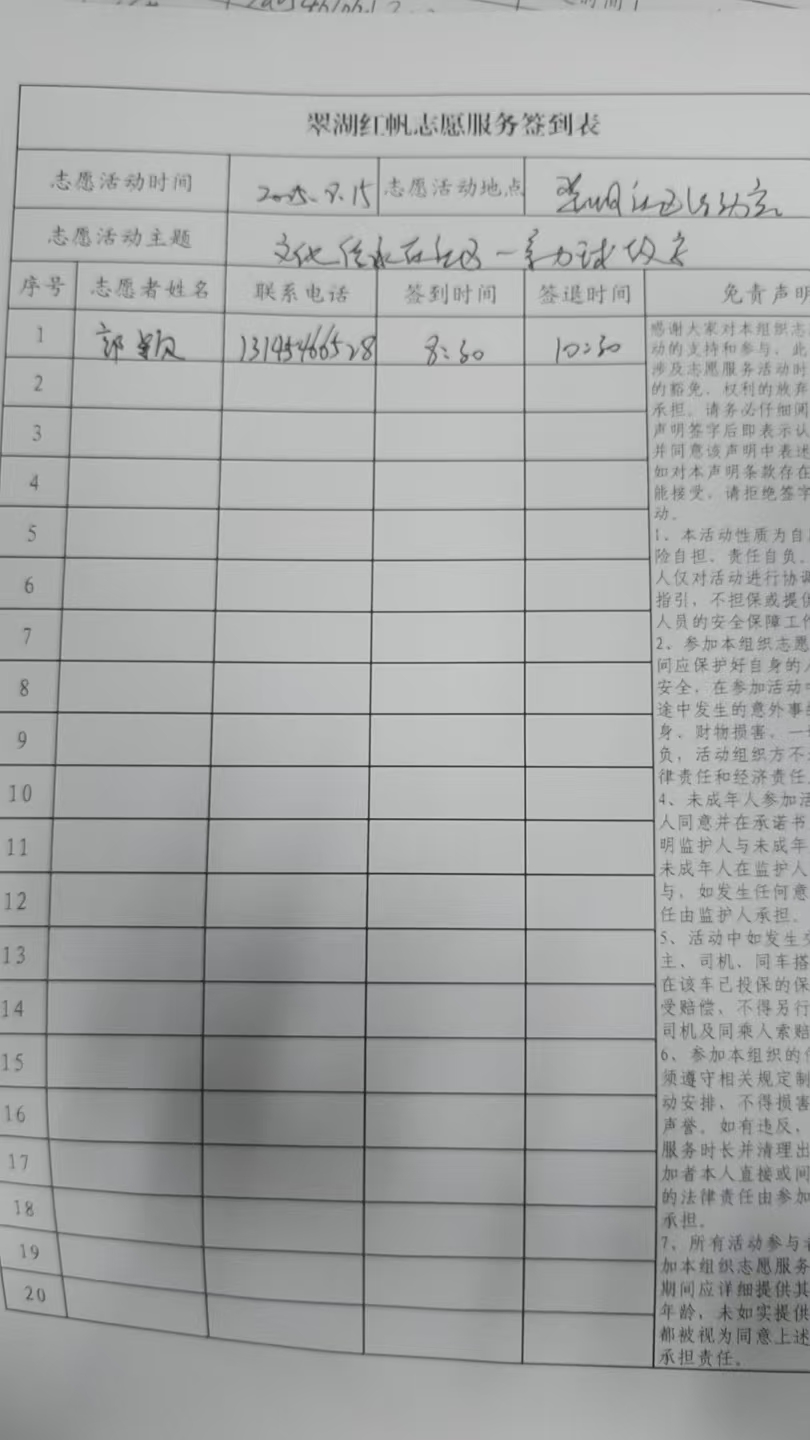 翠湖红帆志愿服务签到表
志愿活动时间 2025.8.15 志愿活动地点 翠湖社区活动室
志愿活动主题 文化传承在社区一柔力球
序号 志愿者姓名 联系电话 签到时间 签退时间 免责声明
1 郭颖 13145466528 8:30 10:30
2
3
4
5
6
7
8
9
10
11
12
13
14
15
16
17
18
19
20
感谢大家对本组织志
动的支持和参与，此
涉及志愿服务活动时
的豁免、权利的放弃
承担。请务必仔细阅
声明签字后即表示认
并同意该声明中表述
如对本声明条款存在
能接受，请拒绝签字
动。
1、本活动性质为自
险自担、责任自负。
人仅对活动进行协调
指引，不担保或提供
人员的安全保障工作
2、参加本组织志愿
间应保护好自身的人
安全，在参加活动
途中发生的意外事
身、财物损害、一
负，活动组织方不
律责任和经济责任
4、未成年人参加活
人同意并在承诺书
明监护人与未成年
未成年人在监护人
与，如发生任何意
任由监护人承担。
5、活动中如发生
主、司机、同车搭
在该车已投保的保
受赔偿，不得另行
司机及同乘人索赔
6、参加本组织的
须遵守相关规定制
动安排，不得损害
声誉。如有违反，
服务时长并清理出
加者本人直接或间
的法律责任由参加
承担。
7、所有活动参与
加本组织志愿服务
期间应详细提供其
年龄，未如实提供
都被视为同意上述
承担责任。